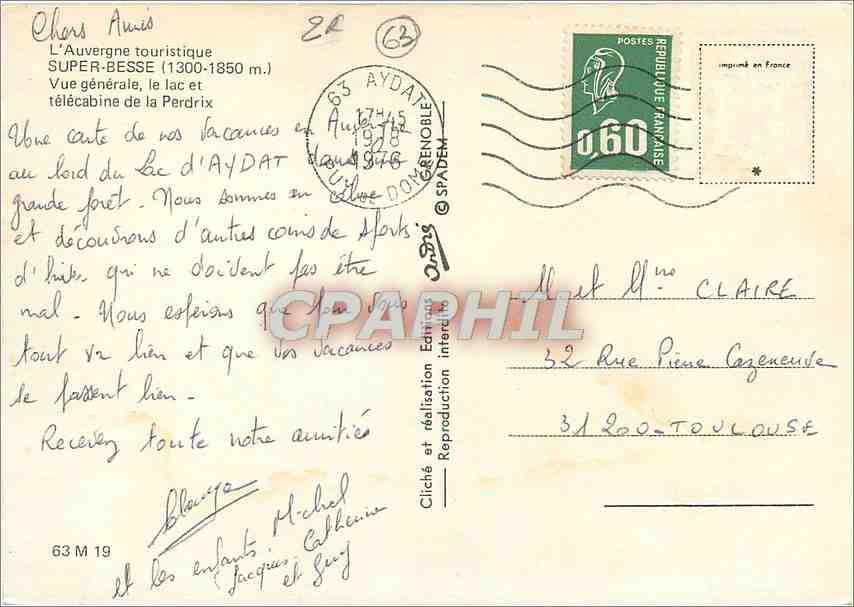 Chers Amis
2R
63
L'Auvergne touristique
SUPER-BESSE (1300-1850 m.)
Vue générale, le lac et
télécabine de la Perdrix
Une carte de nos vacances en
au bord du Lac d'AYDAT dans une
grande forêt. Nous sommes en
et découvrons d'autres coins de sports
d'hiver qui ne doivent pas être
mal. Nous espérons que pour vous
tout va bien et que vos vacances
se passent bien.
Recevez toute notre amitié
et les enfants Michel
Jacques Catherine
et Guy
63 M 19
63 AYDAT
17H45
19-8
1976
PUY DE DOME
Cliché et réalisation Editions André GRENOBLE
Reproduction interdite © SPADEM
POSTES
REPUBLIQUE FRANÇAISE
0,60
imprimé en France
*
M et Mme CLAIRE
32 Rue Pierre Cazeneuve
31200 - TOULOUSE
CPAPHIL